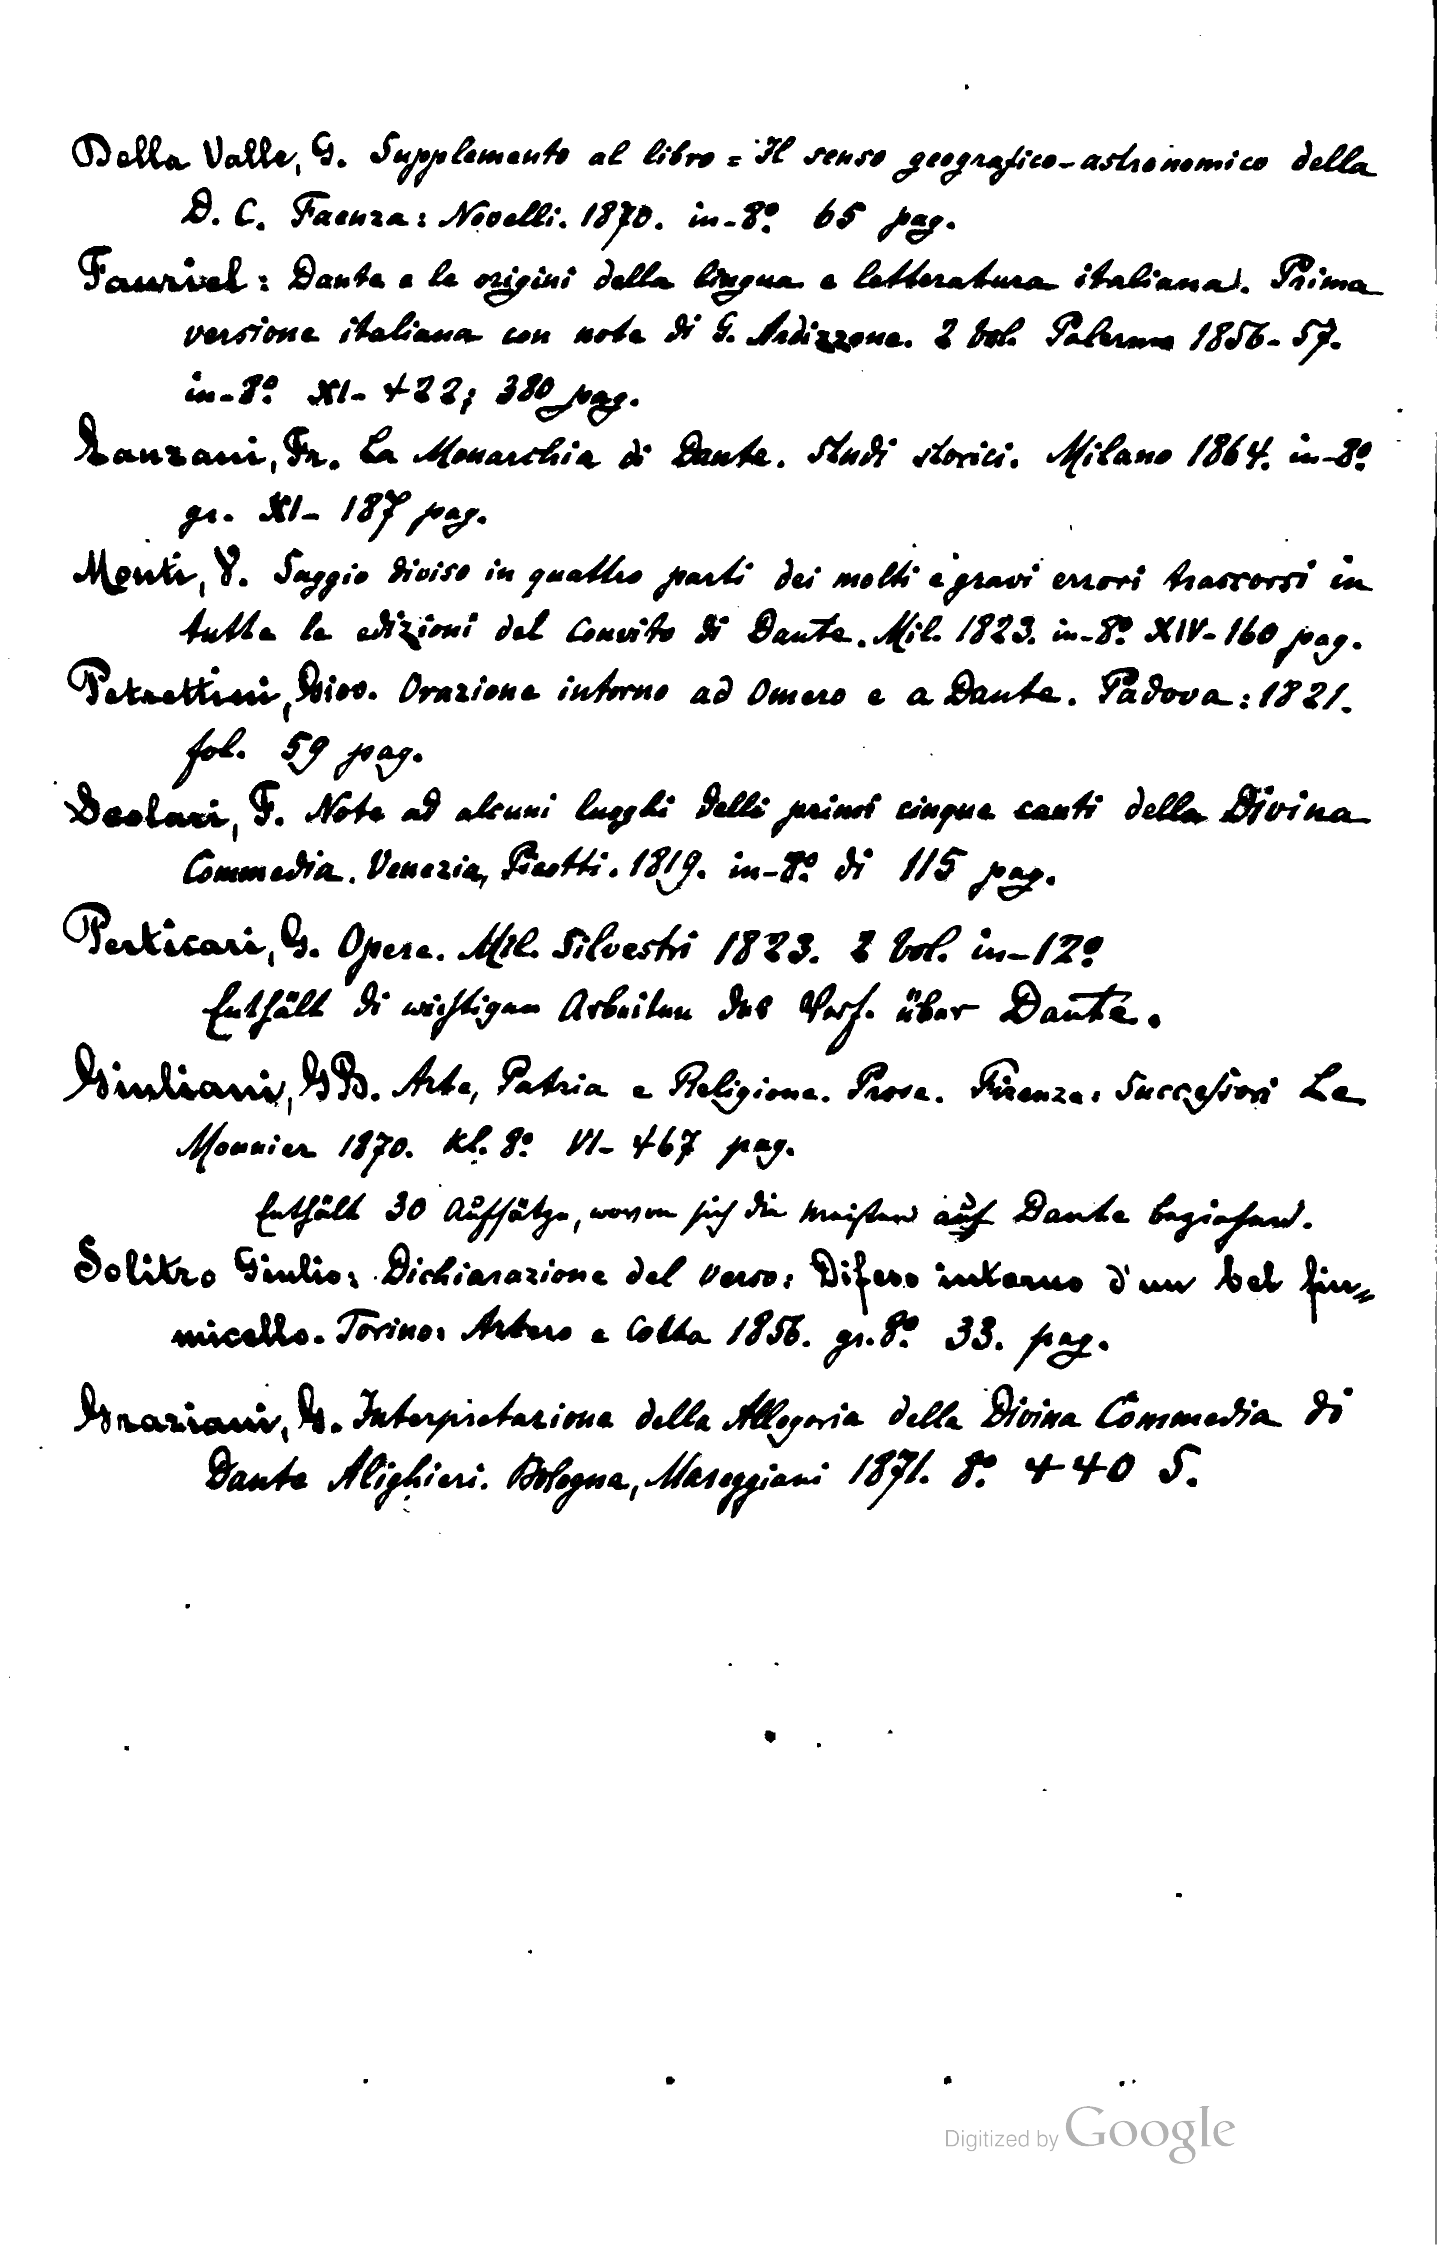 Della Valle, G. Supplemento al libro = Il senso geografico-astronomico della
D. C. Faenza: Novelli. 1870. in-8º. 65 pag.
Fauriel: Dante e le origini della lingua e letteratura italiana. Prima
versione italiana con note di G. Ardizzone. 2 vol. Palermo 1856-57.
in-8º. XI-422; 380 pag.
Lanzani, Fr. La Monarchia di Dante. Studi storici. Milano 1864. in-8º.
gr. XI-187 pag.
Monti, V. Saggio diviso in quattro parti dei molti e gravi errori trascorsi in
tutte le edizioni del Convito di Dante. Mil. 1823. in-8º. XIV-160 pag.
Petrettini, Giov. Orazione intorno ad Omero e a Dante. Padova: 1821.
fol. 59 pag.
Scolari, F. Note ad alcuni luoghi delli primi cinque canti della Divina
Commedia. Venezia, Picotti. 1819. in-8º. di 115 pag.
Perticari, G. Opere. Mil. Silvestri 1823. 2 vol. in-12º
Enthält di wichtigen Arbeiten des Verf. über Dante.
Giuliani, GB. Arte, Patria e Religione. Prose. Firenze: Successori Le
Monnier 1870. kl. 8º. VI-467 pag.
Enthält 30 Aufsätze, wovon sich die meisten auf Dante beziehen.
Solitro Giulio: Dichiarazione del verso: Difeso intorno d'un bel fiu=
micello. Torino: Artero e Cotta 1856. gr. 8º. 33. pag.
Graziani, G. Interpretazione della Allegoria della Divina Commedia di
Dante Alighieri. Bologna, Mareggiani 1871. 8º. 440 S.
Digitized by Google